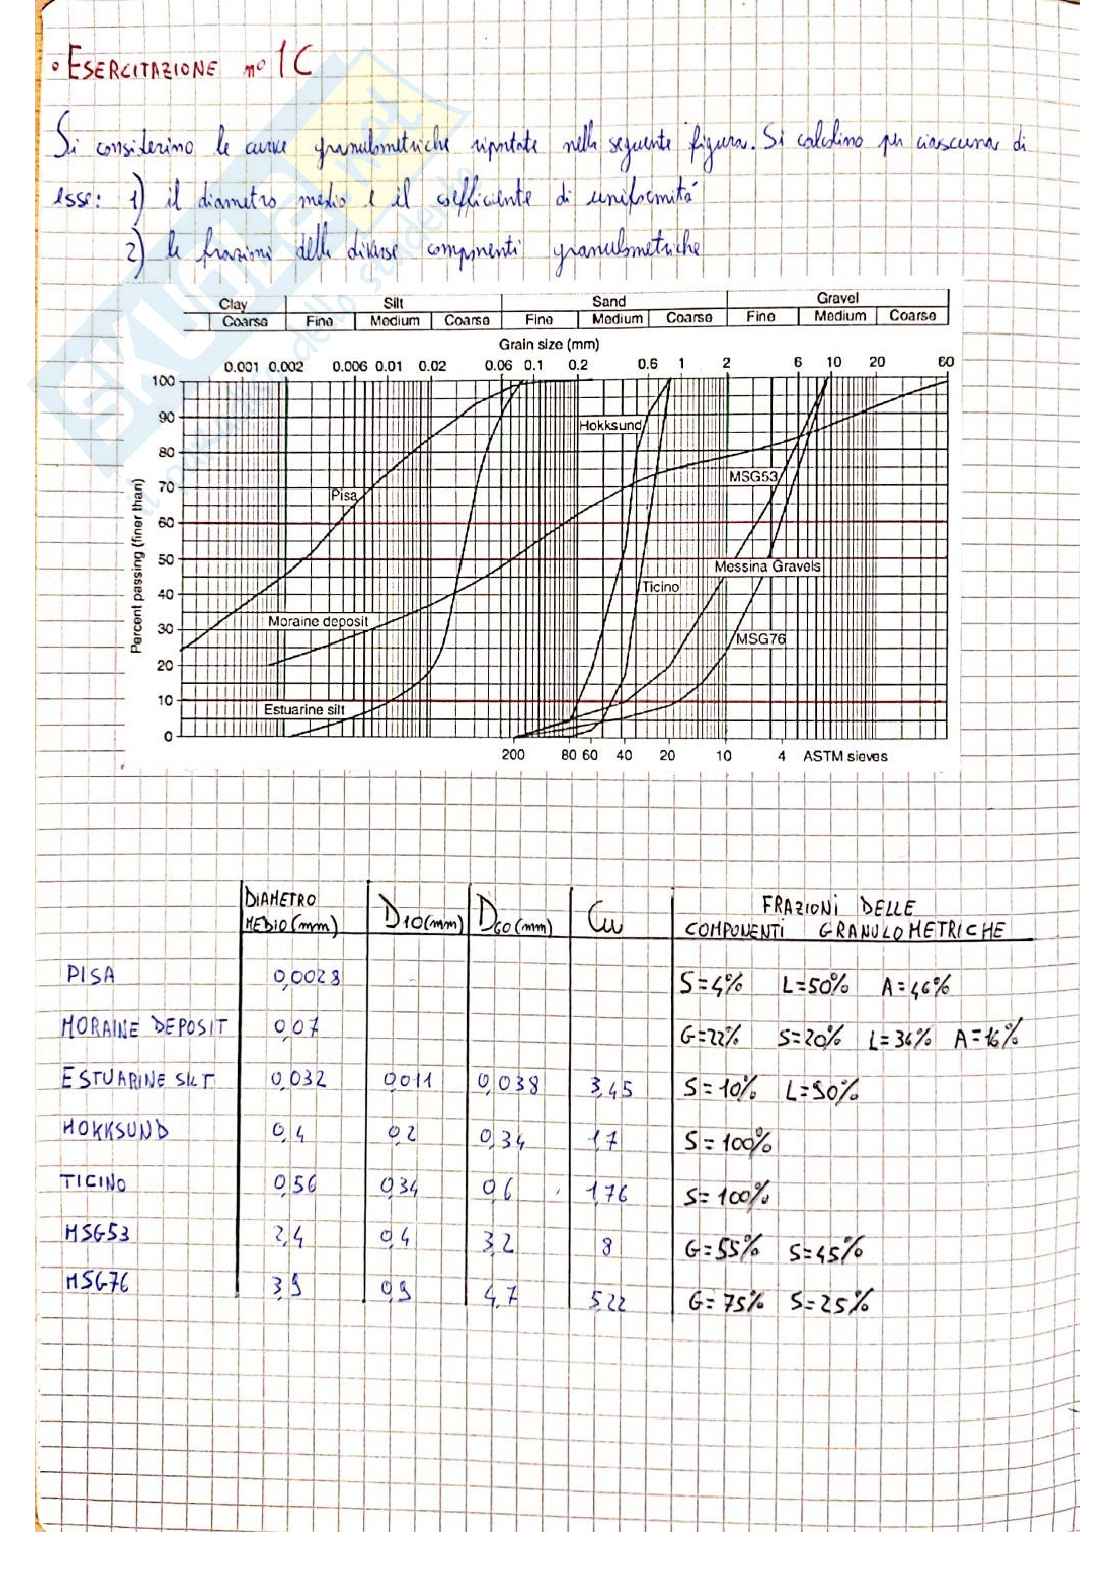 ° ESERCITAZIONE n° 1C
Si considerino le curve granulometriche riportate nella seguente figura. Si calcolino per ciascuna di
esse: 1) il diametro medio e il coefficiente di uniformità
2) le frazioni delle diverse componenti granulometriche
Clay Silt Sand Gravel
Coarse Fine Medium Coarse Fine Medium Coarse Fine Medium Coarse
Grain size (mm)
0.001 0.002 0.006 0.01 0.02 0.06 0.1 0.2 0.6 1 2 6 10 20 60
100
90
80
70
60
50
40
30
20
10
0
Percent passing (finer than)
Hokksund
MSG53
Pisa
Messina Gravels
Ticino
Moraine deposit
MSG76
Estuarine silt
200 80 60 40 20 10 4 ASTM sieves
DIAMETRO MEDIO (mm) D10 (mm) D60 (mm) Cu FRAZIONI DELLE COMPONENTI GRANULOMETRICHE
PISA 0,0028 S=4% L=50% A=46%
MORAINE DEPOSIT 0,07 G=22% S=20% L=36% A=16%
ESTUARINE SILT 0,032 0,011 0,038 3,45 S=10% L=90%
HOKKSUND 0,4 0,2 0,34 1,7 S=100%
TICINO 0,56 0,34 0,6 1,76 S=100%
MSG53 2,4 0,4 3,2 8 G=55% S=45%
MSG76 3,9 0,9 4,7 5,22 G=75% S=25%